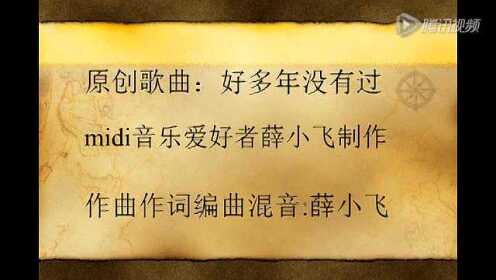 腾讯视频
原创歌曲：好多年没有过
midi音乐爱好者薛小飞制作
作曲作词编曲混音:薛小飞